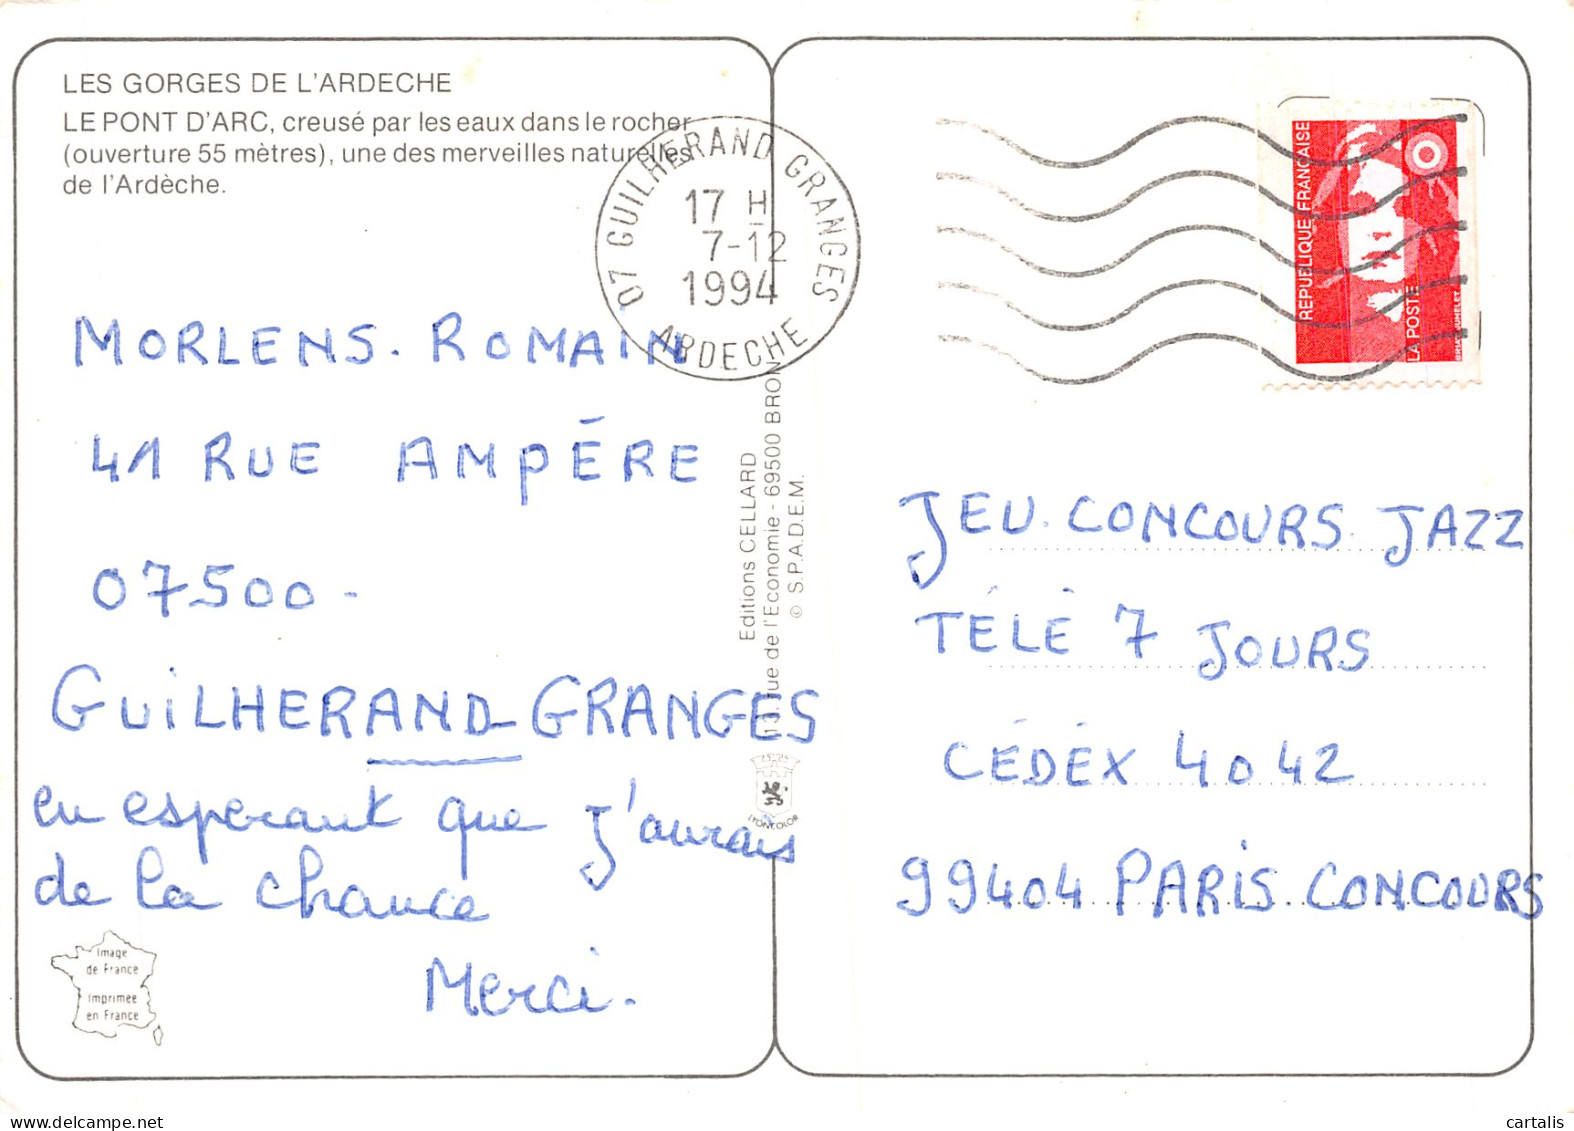 LES GORGES DE L'ARDECHE
LE PONT D'ARC, creusé par les eaux dans le rocher
(ouverture 55 mètres), une des merveilles naturelles
de l'Ardèche.
07 GUILHERAND GRANGES
17 H
7-12
1994
ARDECHE
REPUBLIQUE FRANÇAISE
LA POSTE
MORLENS. ROMAIN
41 RUE AMPÉRE
07500-
GUILHERAND-GRANGES
en esperant que j'aurais
de la chance
Merci.
Editions CELLARD
rue de l'Economie - 69500 BRON
© S.P.A.D.E.M.
LYONCOLOR
JEU. CONCOURS. JAZZ
TÉLÉ 7 JOURS
CÉDÉX 4042
99404 PARIS. CONCOURS
Image
de France
Imprimée
en France
cartalis